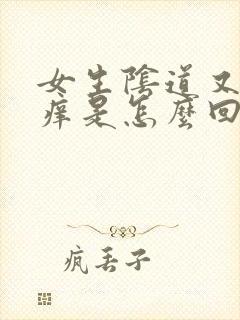 女生陰道又
痒是怎麼回
疯丢子